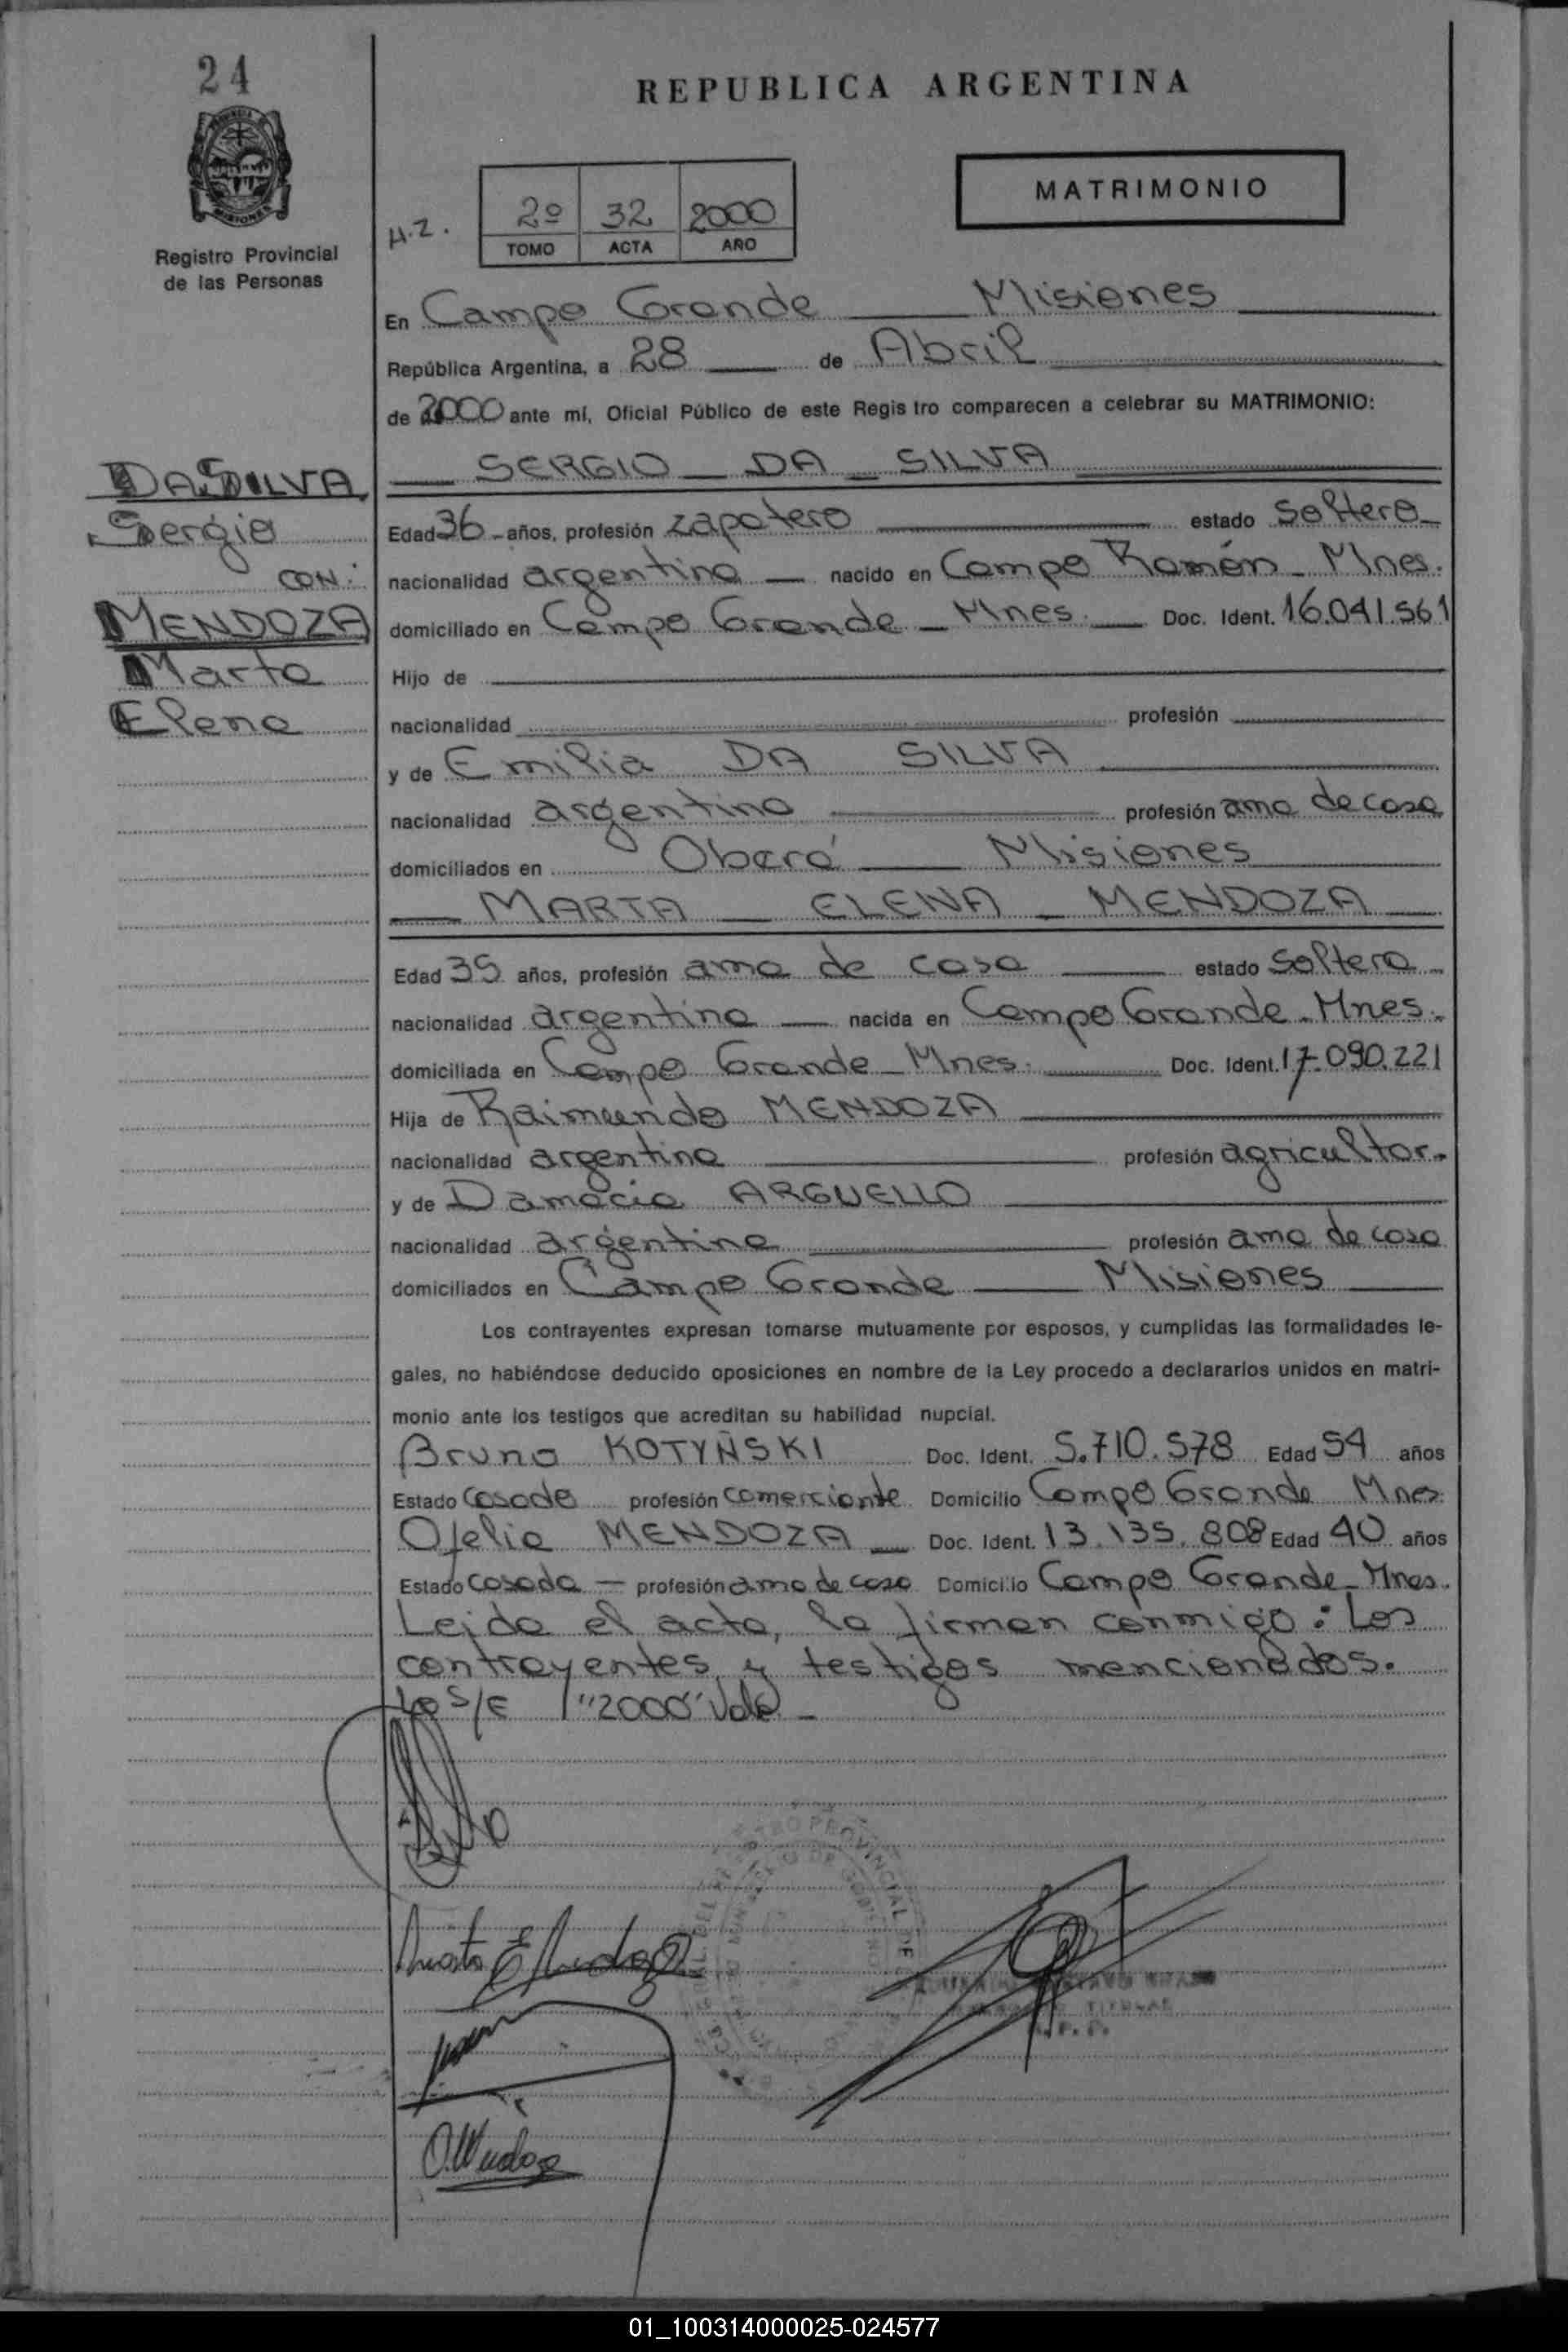 24
REPUBLICA ARGENTINA
MATRIMONIO
H.Z.
2º 32 2000
TOMO ACTA AÑO
Registro Provincial
de las Personas
En Campo Grande Misiones
República Argentina, a 28 de Abril
de 2000 ante mí, Oficial Público de este Regis tro comparecen a celebrar su MATRIMONIO:
SERGIO DA SILVA
DA SILVA
Sergio
CON:
MENDOZA
Marta
Elena
Edad 36 años, profesión zapatero estado soltero
nacionalidad argentina nacido en Campo Ramón - Mnes.
domiciliado en Campo Grande - Mnes. Doc. Ident. 16.041.561
Hijo de
nacionalidad profesión
y de Emilia DA SILVA
nacionalidad argentina profesión ama de casa
domiciliados en Oberá Misiones
MARTA ELENA MENDOZA
Edad 35 años, profesión ama de casa estado soltera
nacionalidad argentina nacida en Campo Grande - Mnes.
domiciliada en Campo Grande - Mnes. Doc. Ident. 17.090.221
Hija de Raimundo MENDOZA
nacionalidad argentina profesión agricultor.
y de Damacia ARGUELLO
nacionalidad argentina profesión ama de casa
domiciliados en Campo Grande Misiones
Los contrayentes expresan tomarse mutuamente por esposos, y cumplidas las formalidades le-
gales, no habiéndose deducido oposiciones en nombre de la Ley procedo a declararlos unidos en matri-
monio ante los testigos que acreditan su habilidad nupcial.
Bruno KOTYÑSKI Doc. Ident. 5.710.578 Edad 54 años
Estado casado profesión comerciante Domicilio Campo Grande Mnes
Ofelia MENDOZA Doc. Ident. 13.135.808 Edad 40 años
Estado casada - profesión ama de casa Domicilio Campo Grande - Mnes.
Leida el acta, la firman conmigo: Los
contrayentes y testigos mencionados.
Lo S/E "2000" Vale -
Marta E Mendoza
O. Mendoza
01_100314000025-024577